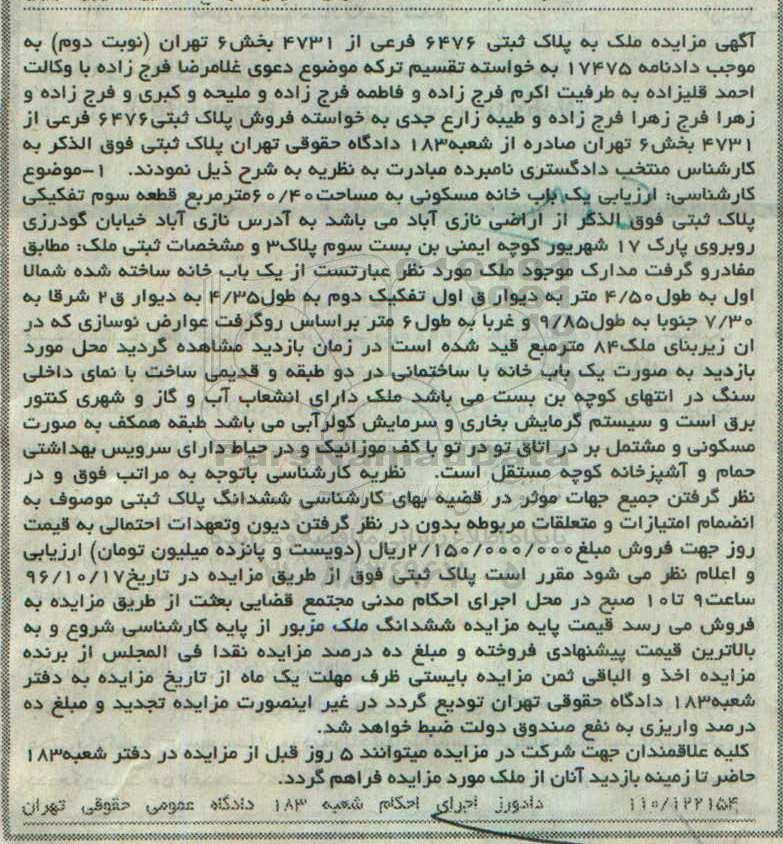 آگهی مزایده ملک به پلاک ثبتی ۶۴۷۶ فرعی از ۴۷۳۱ بخش۶ تهران (نوبت دوم) به
موجب دادنامه ۱۷۴۷۵ به خواسته تقسیم ترکه موضوع دعوی غلامرضا فرج زاده با وکالت
احمد قلیزاده به طرفیت اکرم فرج زاده و فاطمه فرج زاده و ملیحه و کبری و فرج زاده و
زهرا فرج زهرا فرج زاده و طیبه زارع جدی به خواسته فروش پلاک ثبتی۶۴۷۶ فرعی از
۴۷۳۱ بخش۶ تهران صادره از شعبه۱۸۳ دادگاه حقوقی تهران پلاک ثبتی فوق الذکر به
کارشناس منتخب دادگستری نامبرده مبادرت به نظریه به شرح ذیل نمودند. ۱-موضوع
کارشناسی: ارزیابی یک باب خانه مسکونی به مساحت۶۰/۴۰مترمربع قطعه سوم تفکیکی
پلاک ثبتی فوق الذکر از اراضی نازی آباد می باشد به آدرس نازی آباد خیابان گودرزی
روبروی پارک ۱۷ شهریور کوچه ایمنی بن بست سوم پلاک۳ و مشخصات ثبتی ملک: مطابق
مفادرو گرفت مدارک موجود ملک مورد نظر عبارتست از یک باب خانه ساخته شده شمالا
اول به طول۴/۵۰ متر به دیوار ق اول تفکیک دوم به طول۴/۳۵ به دیوار ق۲ شرقا به
۷/۳۰ جنوبا به طول۹/۸۵ و غربا به طول۶ متر براساس روگرفت عوارض نوسازی که در
ان زیربنای ملک۸۴ مترمبع قید شده است در زمان بازدید مشاهده گردید محل مورد
بازدید به صورت یک باب خانه با ساختمانی در دو طبقه و قدیمی ساخت با نمای داخلی
سنگ در انتهای کوچه بن بست می باشد ملک دارای انشعاب آب و گاز و شهری کنتور
برق است و سیستم گرمایش بخاری و سرمایش کولرآبی می باشد طبقه همکف به صورت
مسکونی و مشتمل بر در اتاق تو در تو با کف موزانیک و در حیاط دارای سرویس بهداشتی
حمام و آشپزخانه کوچه مستقل است. نظریه کارشناسی باتوجه به مراتب فوق و در
نظر گرفتن جمیع جهات موثر در قضیه بهای کارشناسی ششدانگ پلاک ثبتی موصوف به
انضمام امتیازات و متعلقات مربوطه بدون در نظر گرفتن دیون وتعهدات احتمالی به قیمت
روز جهت فروش مبلغ۲/۱۵۰/۰۰۰/۰۰۰ریال (دویست و پانزده میلیون تومان) ارزیابی
و اعلام نظر می شود مقرر است پلاک ثبتی فوق از طریق مزایده در تاریخ۹۶/۱۰/۱۷
ساعت۹ تا۱۰ صبح در محل اجرای احکام مدنی مجتمع قضایی بعثت از طریق مزایده به
فروش می رسد قیمت پایه مزایده ششدانگ ملک مزبور از پایه کارشناسی شروع و به
بالاترین قیمت پیشنهادی فروخته و مبلغ ده درصد مزایده نقدا فی المجلس از برنده
مزایده اخذ و الباقی ثمن مزایده بایستی ظرف مهلت یک ماه از تاریخ مزایده به دفتر
شعبه۱۸۳ دادگاه حقوقی تهران تودیع گردد در غیر اینصورت مزایده تجدید و مبلغ ده
درصد واریزی به نفع صندوق دولت ضبط خواهد شد.
کلیه علاقمندان جهت شرکت در مزایده میتوانند ۵ روز قبل از مزایده در دفتر شعبه۱۸۳
حاضر تا زمینه بازدید آنان از ملک مورد مزایده فراهم گردد.
۱۱۰/۱۲۲۱۵۴ دادورز اجرای احکام شعبه ۱۸۳ دادگاه عمومی حقوقی تهران